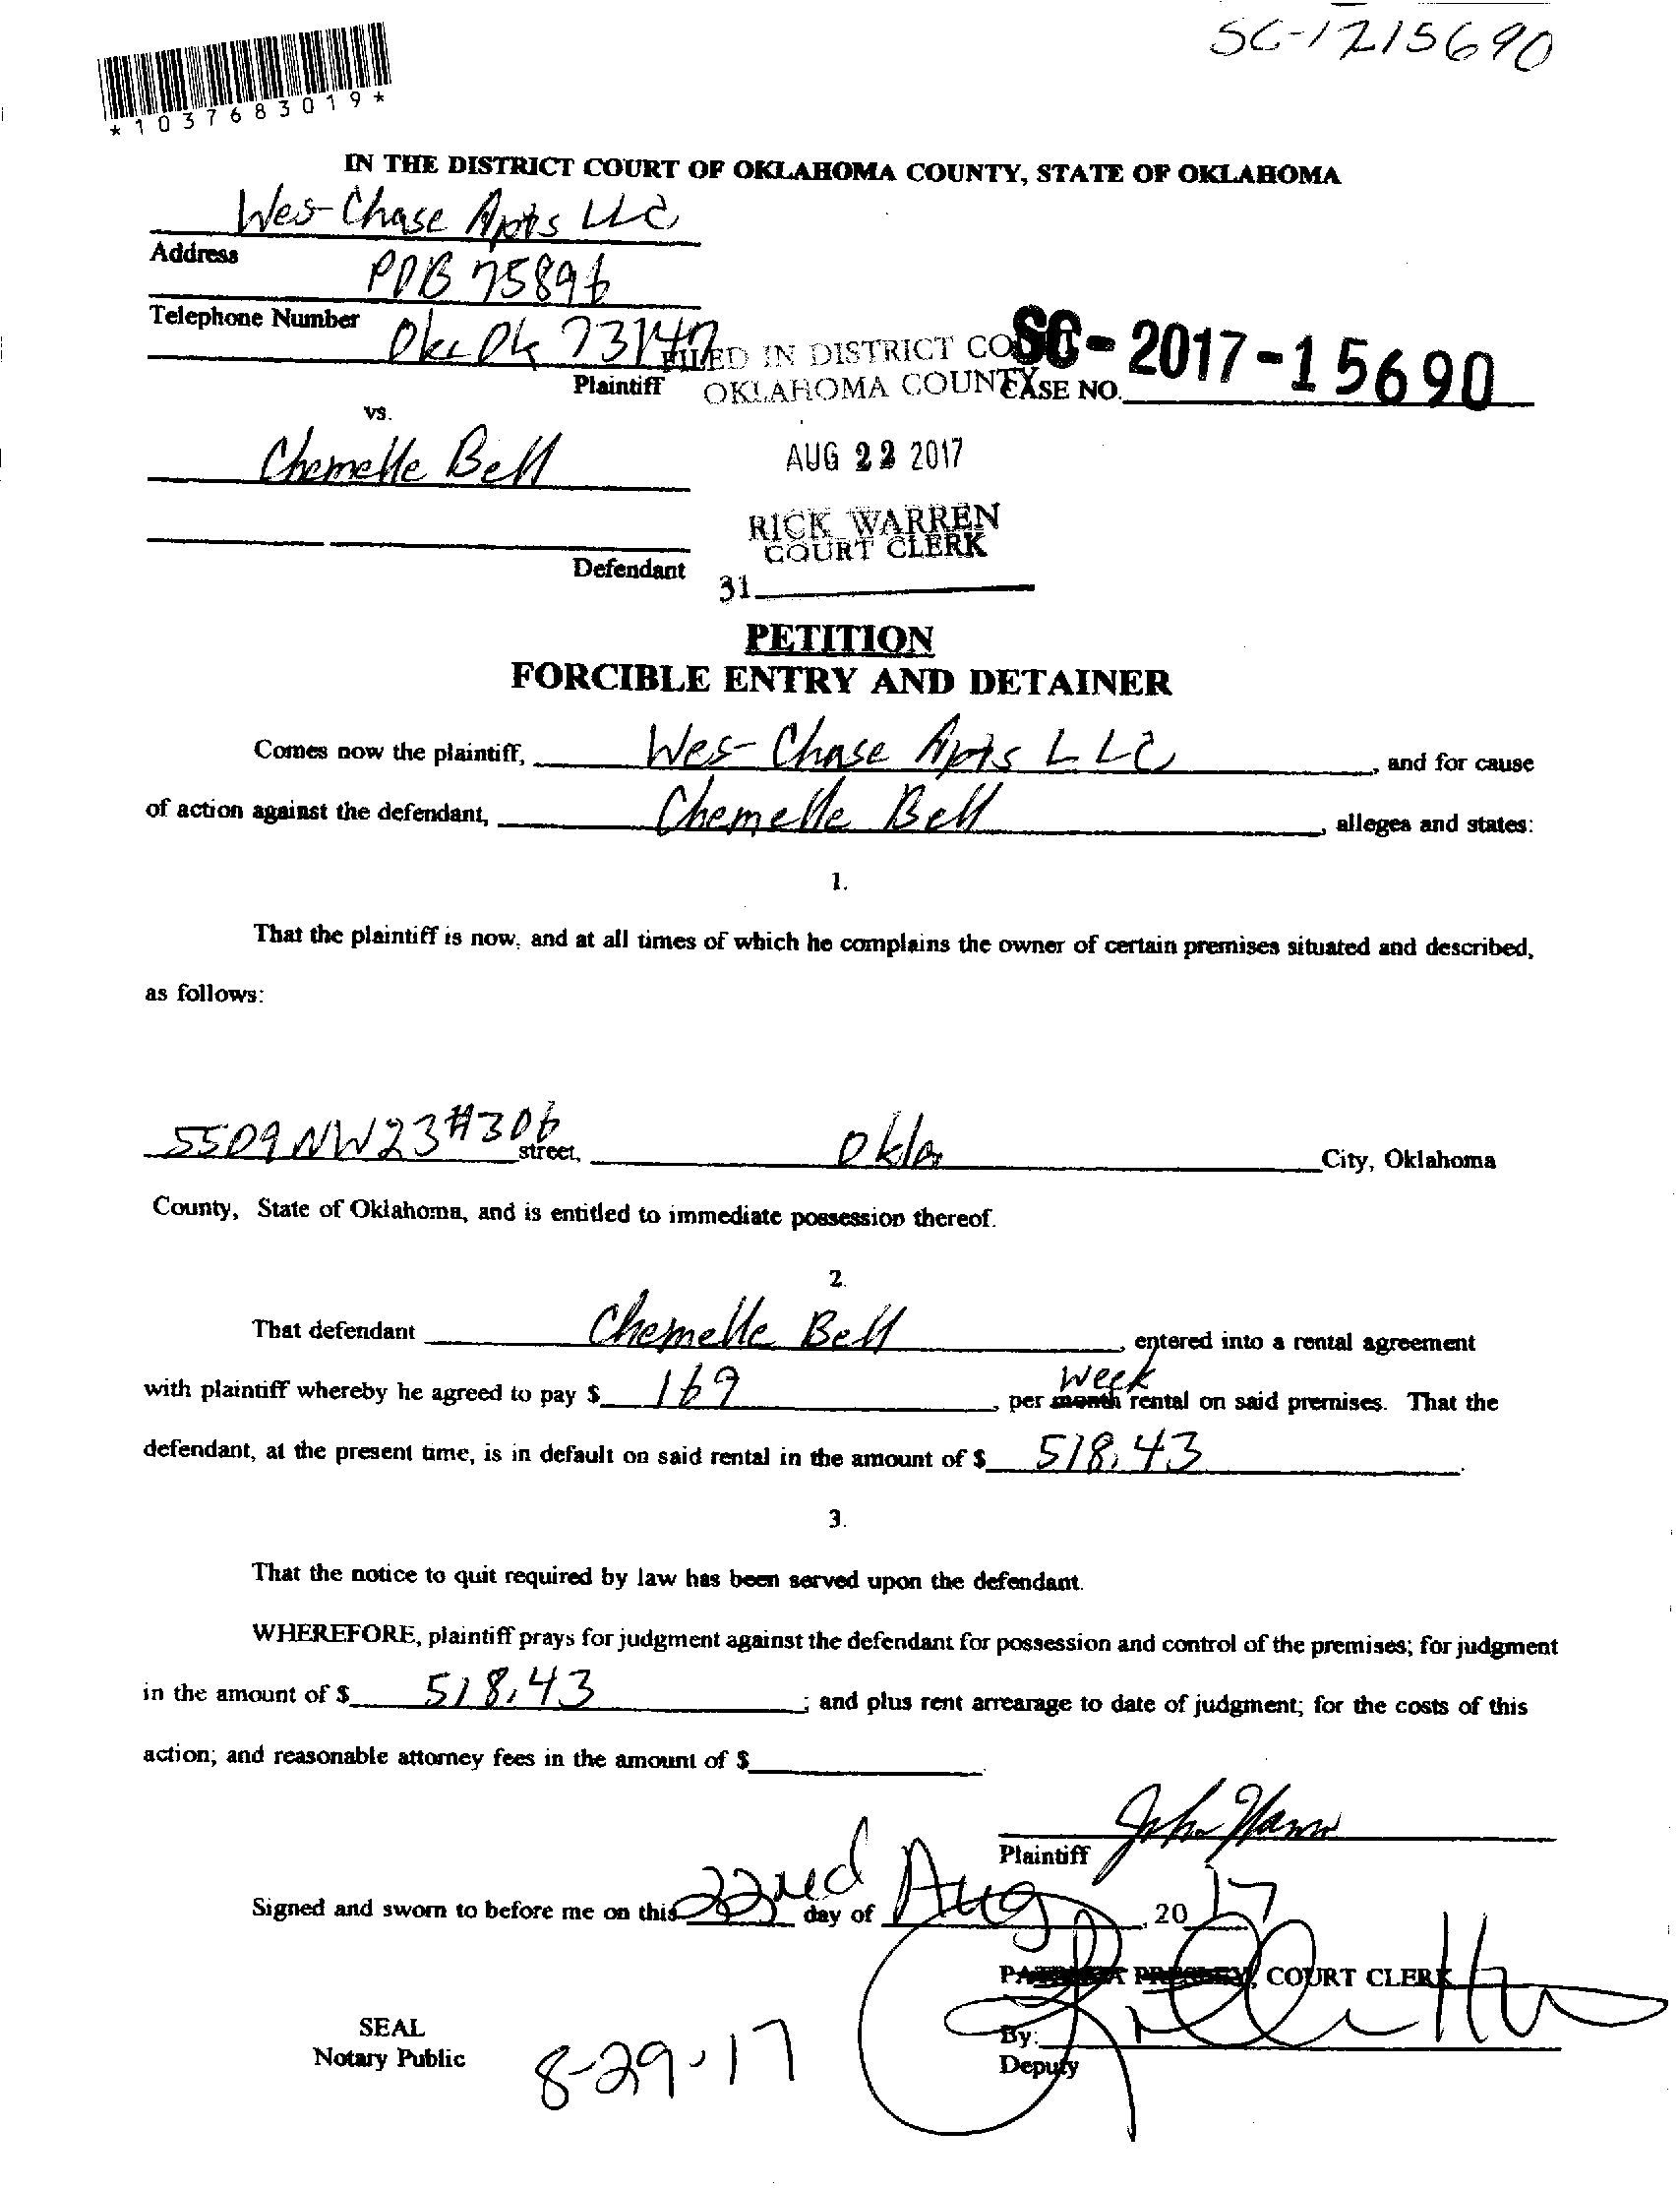 SC-1715690
*1037683019*
IN THE DISTRICT COURT OF OKLAHOMA COUNTY, STATE OF OKLAHOMA
Wes-Chase Apts LLC
Address
POB 75896
Telephone Number
Okc Ok 73147
FILED IN DISTRICT COURT
SC-2017-15690
Plaintiff
OKLAHOMA COUNTY
CASE NO.
vs.
Chemelle Bell
AUG 22 2017
RICK WARREN
COURT CLERK
Defendant
31
PETITION
FORCIBLE ENTRY AND DETAINER
Comes now the plaintiff, Wes-Chase Apts LLC, and for cause
of action against the defendant, Chemelle Bell, alleges and states:
1.
That the plaintiff is now, and at all times of which he complains the owner of certain premises situated and described,
as follows:
5509 NW 23 #306 street, Okla City, Oklahoma
County, State of Oklahoma, and is entitled to immediate possession thereof.
2.
That defendant Chemelle Bell, entered into a rental agreement
with plaintiff whereby he agreed to pay $ 169, per month week rental on said premises. That the
defendant, at the present time, is in default on said rental in the amount of $ 518.43.
3.
That the notice to quit required by law has been served upon the defendant.
WHEREFORE, plaintiff prays for judgment against the defendant for possession and control of the premises; for judgment
in the amount of $ 518.43; and plus rent arrearage to date of judgment; for the costs of this
action; and reasonable attorney fees in the amount of $
Plaintiff
Signed and sworn to before me on this 22nd day of Aug, 2017
COURT CLERK
SEAL
Notary Public
8-29-17
By:
Deputy